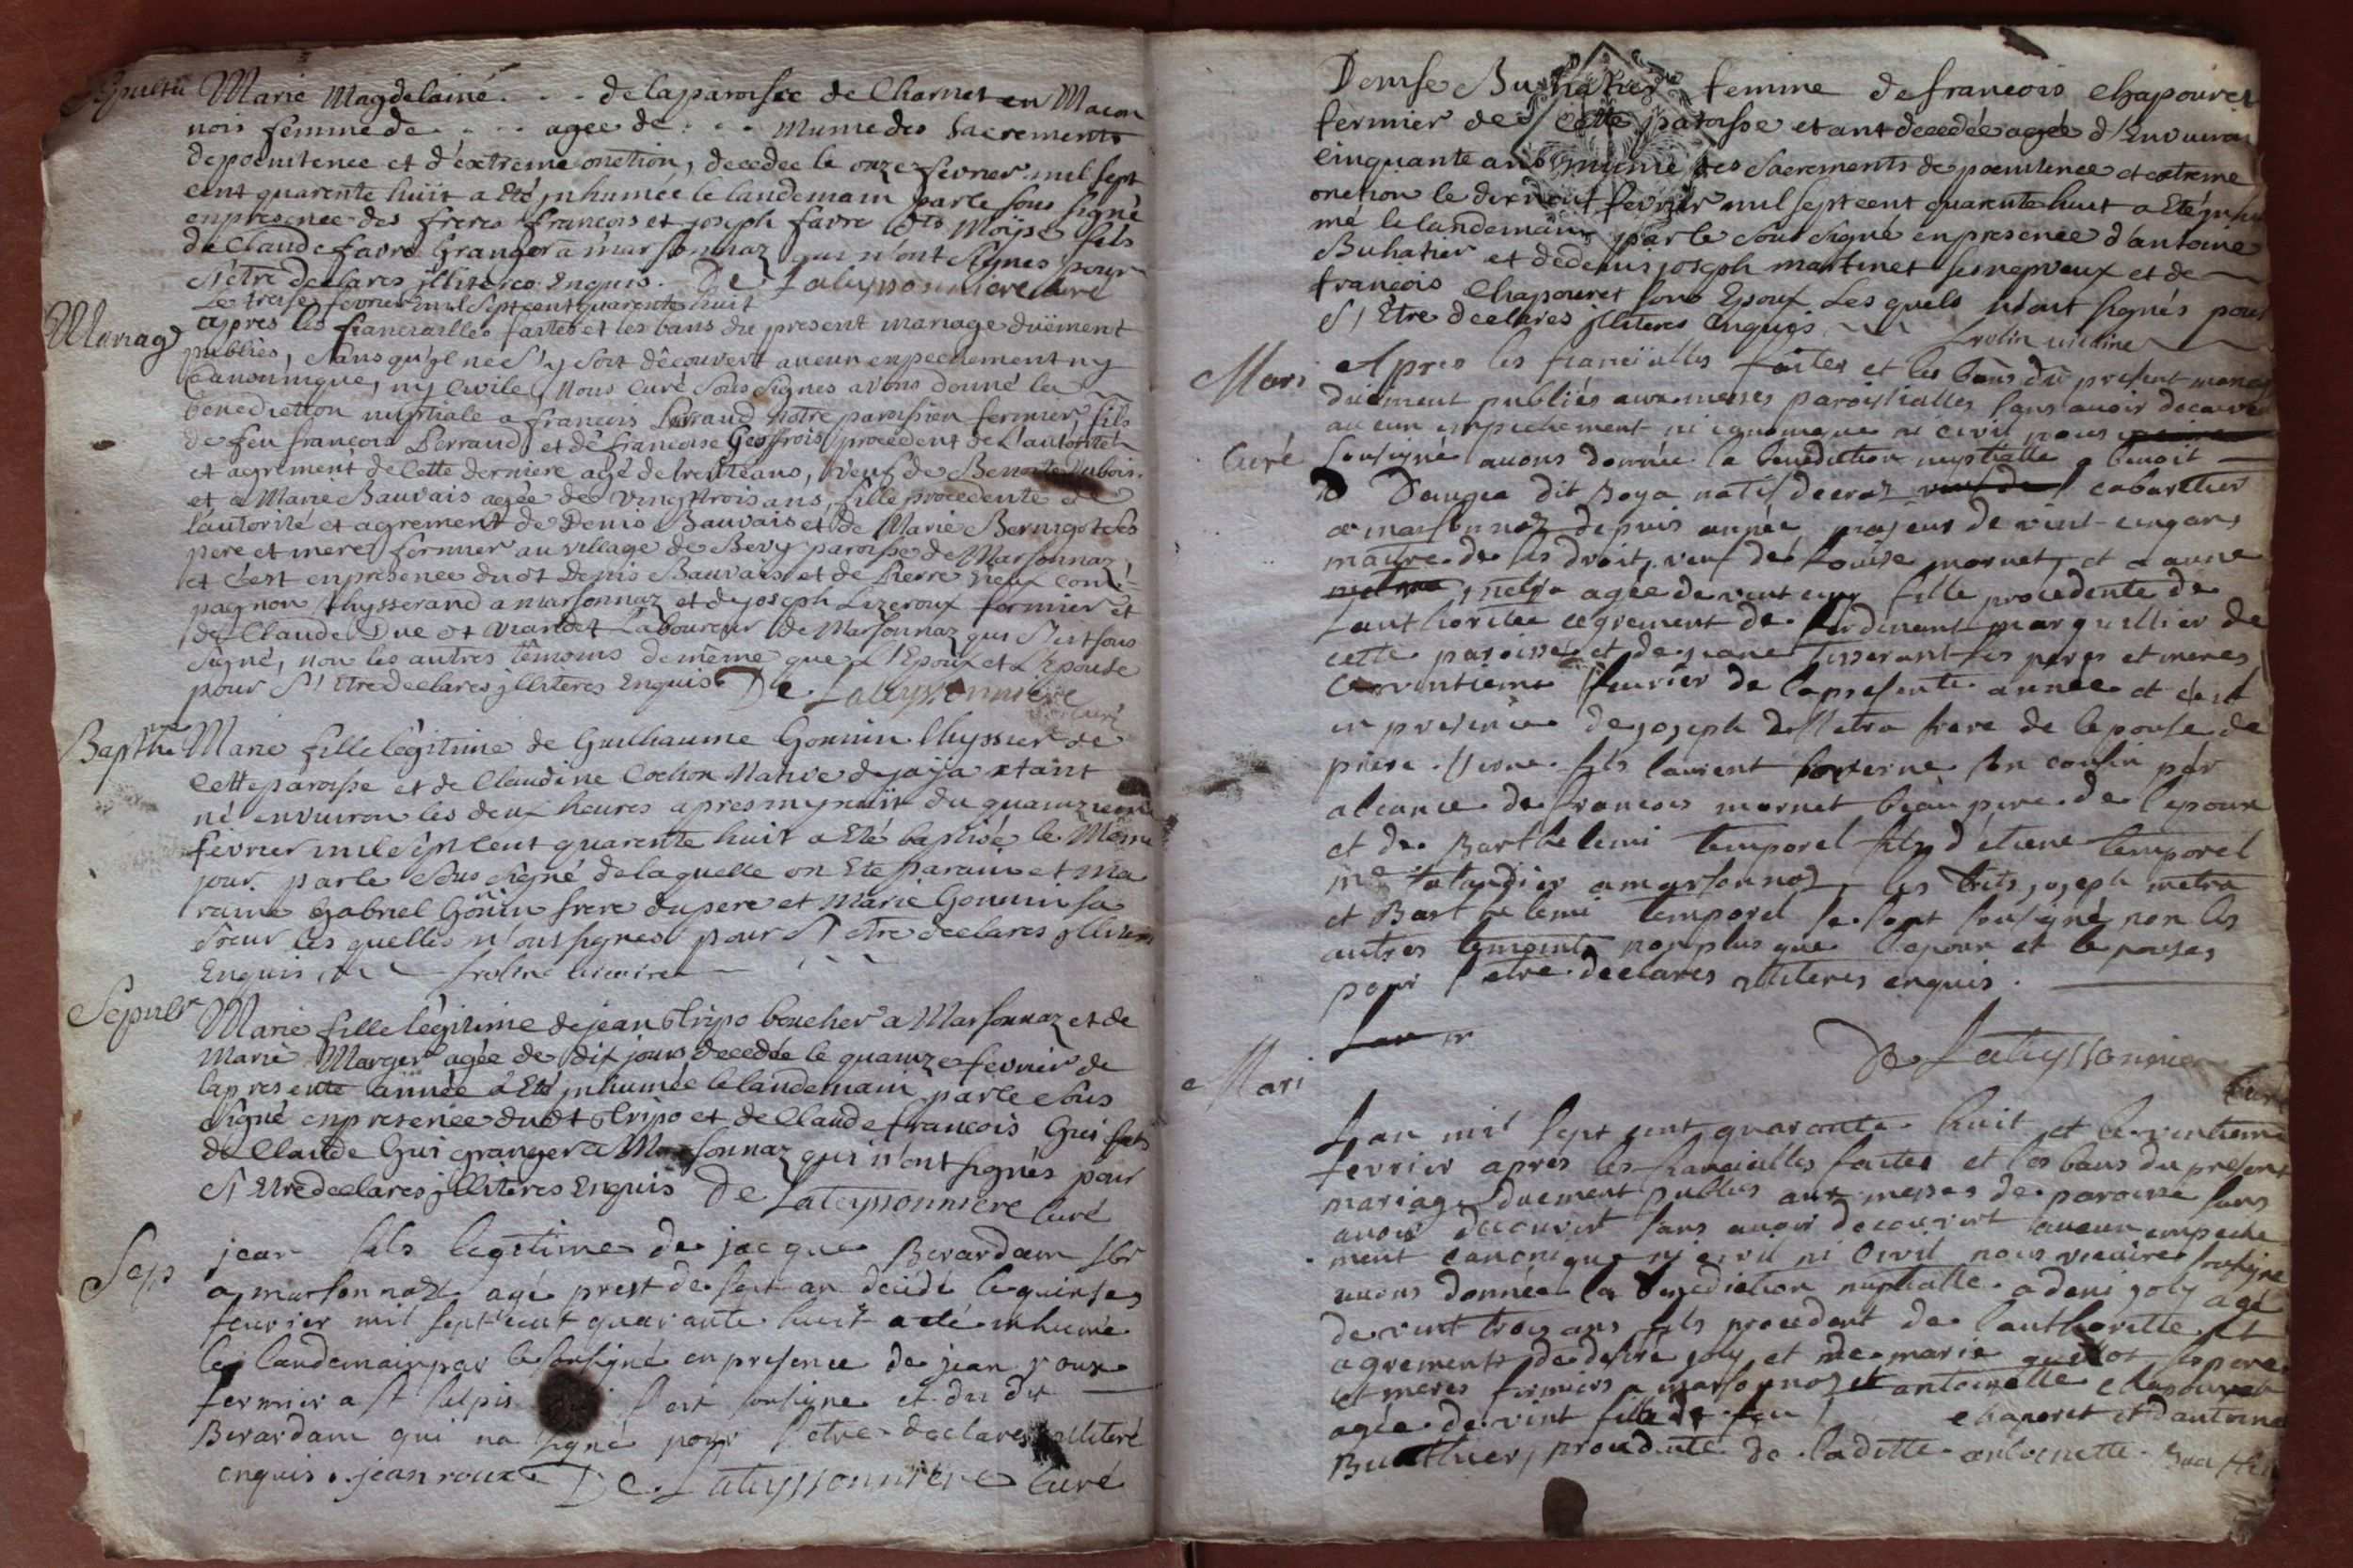 Sepultu Marie Magdelaine . . . delaparoisse de Charnet en Macon
nois femme de . . . . agee de . . . munie des Sacrements
depoenitence et d'extreme onction, decedee le onze fevrier mil sept
cent quarente huit a Eté inhumée le landemain par le sous signé
enpresence des freres françois et joseph favre dts Moïse fils
de Claude favre Granger a marsonnaz qui n'ont signes pour
s'être declares illiteres Enquis. De Lateyssonniere curé
Le treise fevrier mil sept cent quarente huit
Mariag apres les fiancailles faites et les bans du present mariage duëment
publiés, sans qu'il ne s'y soit découvert aucun enpechement ny
Canonnique, ny Civile, Nous curé sous signes avons donné la
benediction nuptiale a francois Perraud notre paroissien fermier, fils
de feu françois Perraud et de francoise Geoffrois procedent de l'autorité
et agrement de cette derniere agé de trente ans, Veuf de Benoite Dubois.
et a Marie Bauvais agée de vingt trois ans, fille procedente de
l'autorité et agrement de Denis Bauvais et de Marie Bernigot ses
pere et mere fermier au village de Bevy paroisse de Marsonnaz,
et c'est enpresence dudt Denis Bauvais et de Pierre vieux com
pagnon thysserand a marsonnaz et de joseph Lizeroux fermier et
de Claude Duc dt viandet Laboureur de Marsonnaz qui s'est sous
signé, non les autres témoins de même que l'Epoux et l'Epouse
pour s'être declares illiteres Enquis. De Lateyssonniere
curé
Bapthe Marie fille légitime de Guilhaume Gonnin thyssier de
cette paroisse et de Claudine Cochon Native dejaja etant
né environ les deux heures apres mynuit du quainzieme
fevrier mil sept cent quarente huit a Eté baptisé le Même
jour par le sous signé de laquelle on Ete parain et ma
raine Gabriel Gonin frere du pere et Marie Gonnin sa
soeur les quelles n'ont signes pour s'etre declares illiteres
Enquis frolin vicaire
Sepultr Marie fille légitime de jean tripo boucher a Marsonnaz et de
Marie Marger agée de dix jours decedée le quainze fevrier de
la presente année a Eté inhumée le landemain par le sous
signé enpresence dudt tripo et de Claude francois Gui fils
de Claude Gui granger a Marsonnaz qui n'ont signés pour
s'Etre declares illiteres Enquis De Lateyssonniere Curé
Sep jean fils legitime de jacque Berardam
a marsonnaz agé prest de sept an decedé le quinse
feuvrier mil sept cent quarante huit a eté inhumé
le landemain par le sousigné en presence de jean roux
fermier a st sulpis sest sousigne et du dit
Berardam qui na signé pour s'etre declares illiteré
enquis. jean roux De Lateyssonniere Curé
Denise Buhatier femme de francois Chapouret
fermier de cette paroisse etant decedée agée d'Environ
cinquante ans munie des Sacrements de poenitence et extreme
onction le dixneuf fevrier mil sept cent quarente huit a Eté inhu
mé le landemain par le sous signé en presence d'antoine
Buhatier et de denis joseph martinet ses nepveux et de
francois Chapouret sons Epoux Lesquels n'ont signés pour
s'Etre declares illiteres Enquis frolin vicaire
Mari Apres les fiancialles faites et les bans du present mariag
duëment publiés aux messes paroissialles sans avoir decouve
aucun empechement ni canonique ni civil nous
Curé sousigné auons donnée la benediction nuptialle a benoit
Dangea dit Boya natif de cras cabaretier
a marsonnaz depuis année majeur de vint cinq ans
maitre de ses droit, veuf de Louise mornet, et a anne
metra agée de vint cinq fille procedente de
l'authoritée agrement de ferdinent marguillier de
cette paroisse et de jeane tisserant ses peres et meres
ce vintieme feuvrier de la presente année et c'est
en presence de joseph metra frere de lepouse de
piere fils laurent son cousin par
aliance de francois mornet beau pere de lepoux
et de Barthelemi temporel fils d'etiene temporel
me talandier a marsonnaz, les dits joseph metra
et Barthelemi temporel se sont sousigné non les
autres temoints nonplus que lepoux et lepouses
pour s'etre declares illiteres enquis.
De Lateyssonnier
Curé
Mari Lan mil sept cent quarante huit et le vintieme
fevrier apres les fiancialles faites et les bans du present
mariage duement publies aux messes de paroisse sans
avoir decouvert sans avoir decouvert aucun empeche
ment canonique ny civil ni Civil nous vicaire sousigné
auons donnée la benediction nuptialle a deni joly agé
de vint trois ans fils procedent de lauthoritée et
agrements de desire joly et de marie guillot ses pere
et meres fermiers a marsonnaz et antoinette chapouret
agée de vint fille de feu chaporet et dantoine
Buathier, procedente de laditte antoinette Buathier